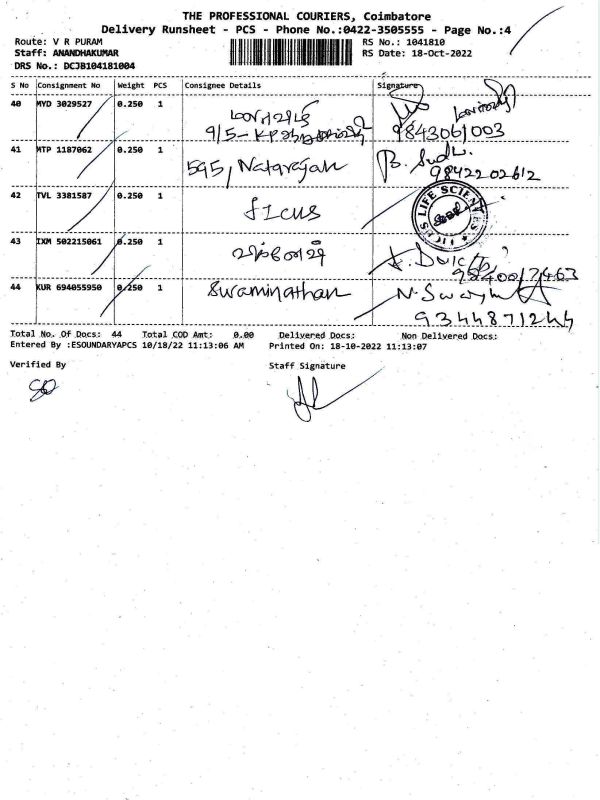 THE PROFESSIONAL COURIERS, Coimbatore
Delivery Runsheet - PCS - Phone No.:0422-3505555 - Page No.:4
Route: V R PURAM
RS No.: 1041810
Staff: ANANDHAKUMAR
RS Date: 18-Oct-2022
DRS No.: DCJB104181004
S No Consignment No Weight PCS Consignee Details Signature
40 MYD 3029527 0.250 1
9843061003
41 MTP 1187062 0.250 1 595, Natarajan
9842202612
42 TVL 3381587 0.250 1 ficus
FICUS LIFE SCIENCES
43 IXM 502215061 0.250 1
44 KUR 694055950 0.250 1 Swaminathan
9344871244
Total No. Of Docs: 44 Total COD Amt: 0.00 Delivered Docs: Non Delivered Docs:
Entered By :ESOUNDARYAPCS 10/18/22 11:13:06 AM Printed On: 18-10-2022 11:13:07
Verified By Staff Signature